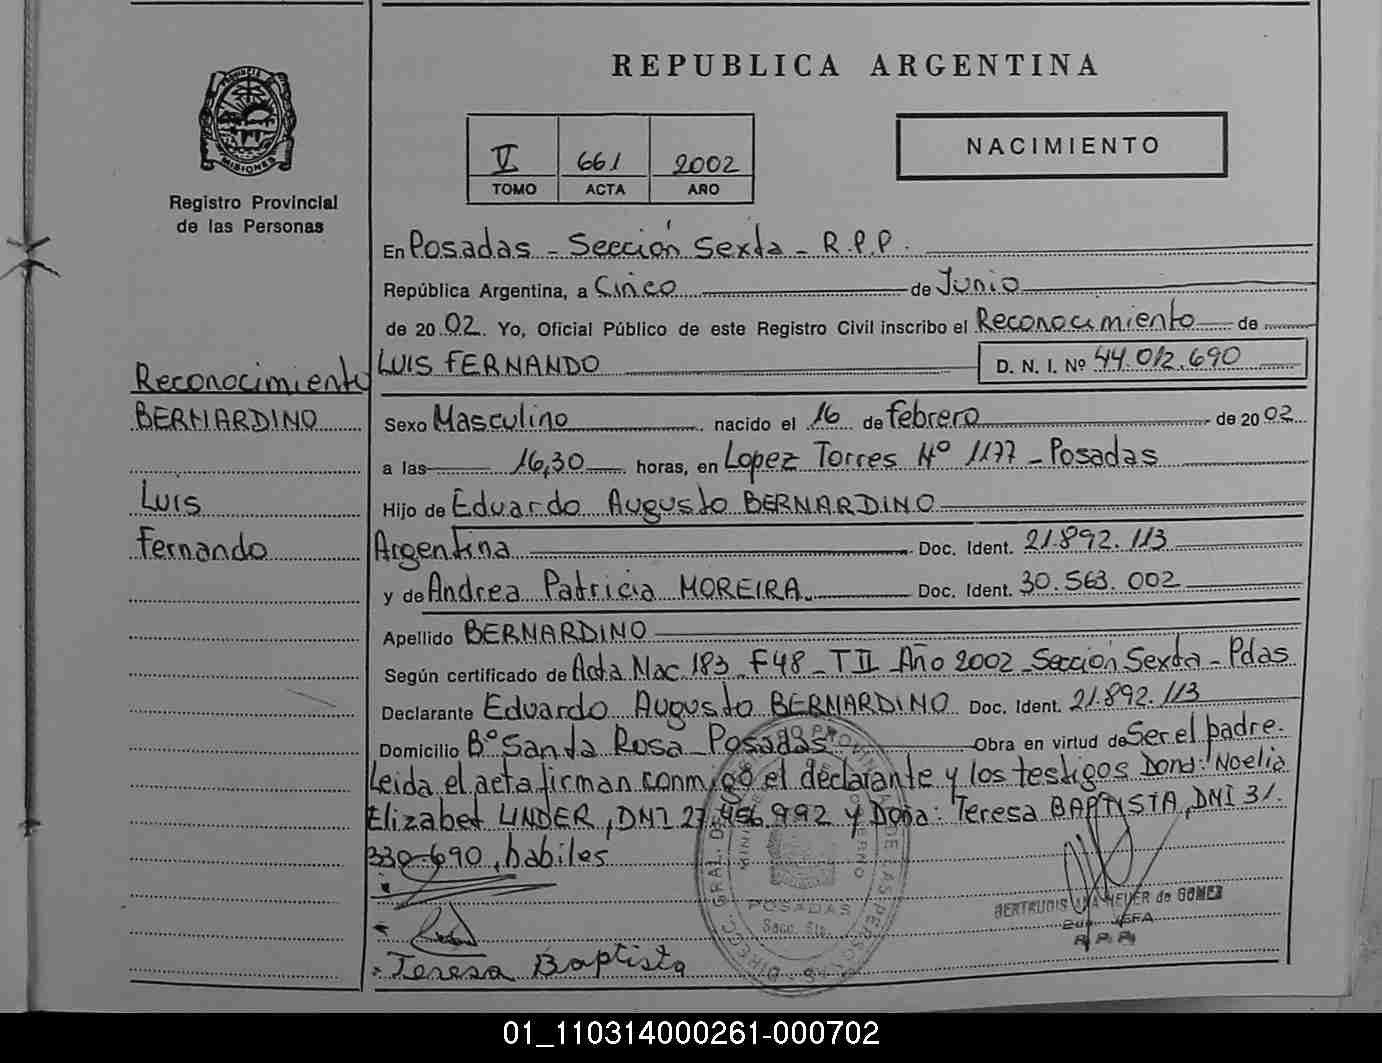 REPUBLICA ARGENTINA
PROVINCIA DE
MISIONES
Registro Provincial
de las Personas
V 661 2002
TOMO ACTA AÑO
NACIMIENTO
En Posadas - Sección Sexta - R.P.P.
República Argentina, a Cinco de Junio
de 2002. Yo, Oficial Público de este Registro Civil inscribo el Reconocimiento de
LUIS FERNANDO D. N. I. Nº 44.012.690
Reconocimiento
BERNARDINO
Luis
Fernando
Sexo Masculino nacido el 16 de Febrero de 2002
a las 16,30 horas, en Lopez Torres Nº 1177 - Posadas
Hijo de Eduardo Augusto BERNARDINO
Argentina Doc. Ident. 21.892.113
y de Andrea Patricia MOREIRA. Doc. Ident. 30.563.002
Apellido BERNARDINO
Según certificado de Acta Nac. 183 - F48 - TII Año 2002 - Sección Sexta - Pdas
Declarante Eduardo Augusto BERNARDINO Doc. Ident. 21.892.113
Domicilio Bº Santa Rosa - Posadas Obra en virtud de Ser el padre.
Leida el acta firman conmigo el declarante y los testigos Doña: Noelia
Elizabet LINDER, DNI 27.456.992 y Doña: Teresa BAPTISTA, DNI 31.
330.690, habiles
POSADAS
Secc. 6ta.
GERTRUDIS de GOMEZ
JEFA
R.P.P.
Teresa Baptista
01_110314000261-000702